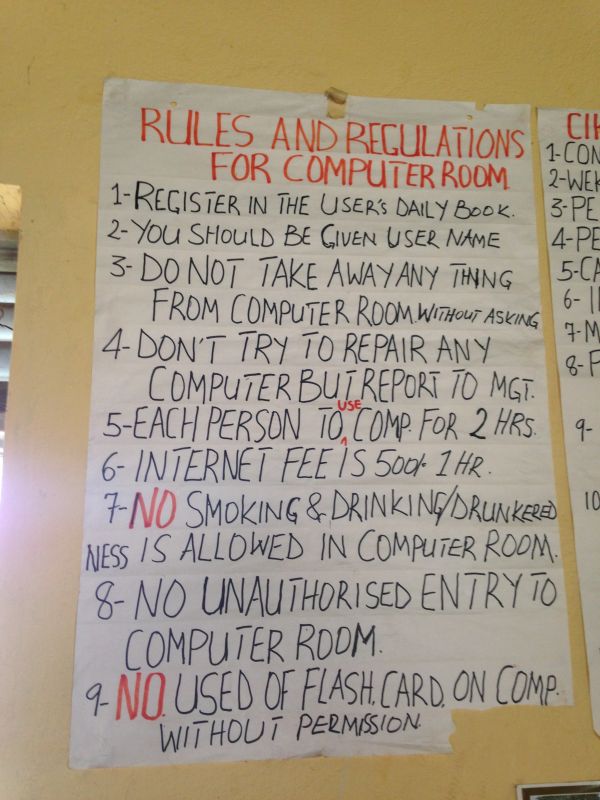 RULES AND REGULATIONS
FOR COMPUTER ROOM
1-REGISTER IN THE USER'S DAILY BOOK.
2-YOU SHOULD BE GIVEN USER NAME
3-DO NOT TAKE AWAY ANY THING
FROM COMPUTER ROOM. WITHOUT ASKING
4-DON'T TRY TO REPAIR ANY
COMPUTER BUT REPORT TO MGT.
5-EACH PERSON TO USE COMP. FOR 2 HRS.
6-INTERNET FEE IS 500/- 1 HR.
7-NO SMOKING & DRINKING/DRUNKERED
NESS IS ALLOWED IN COMPUTER ROOM.
8-NO UNAUTHORISED ENTRY TO
COMPUTER ROOM.
9-NO. USED OF FLASH. CARD. ON COMP.
WITHOUT PERMISSION
1-
2-
3-
4-
5-
6-
7-
8-
9-
10